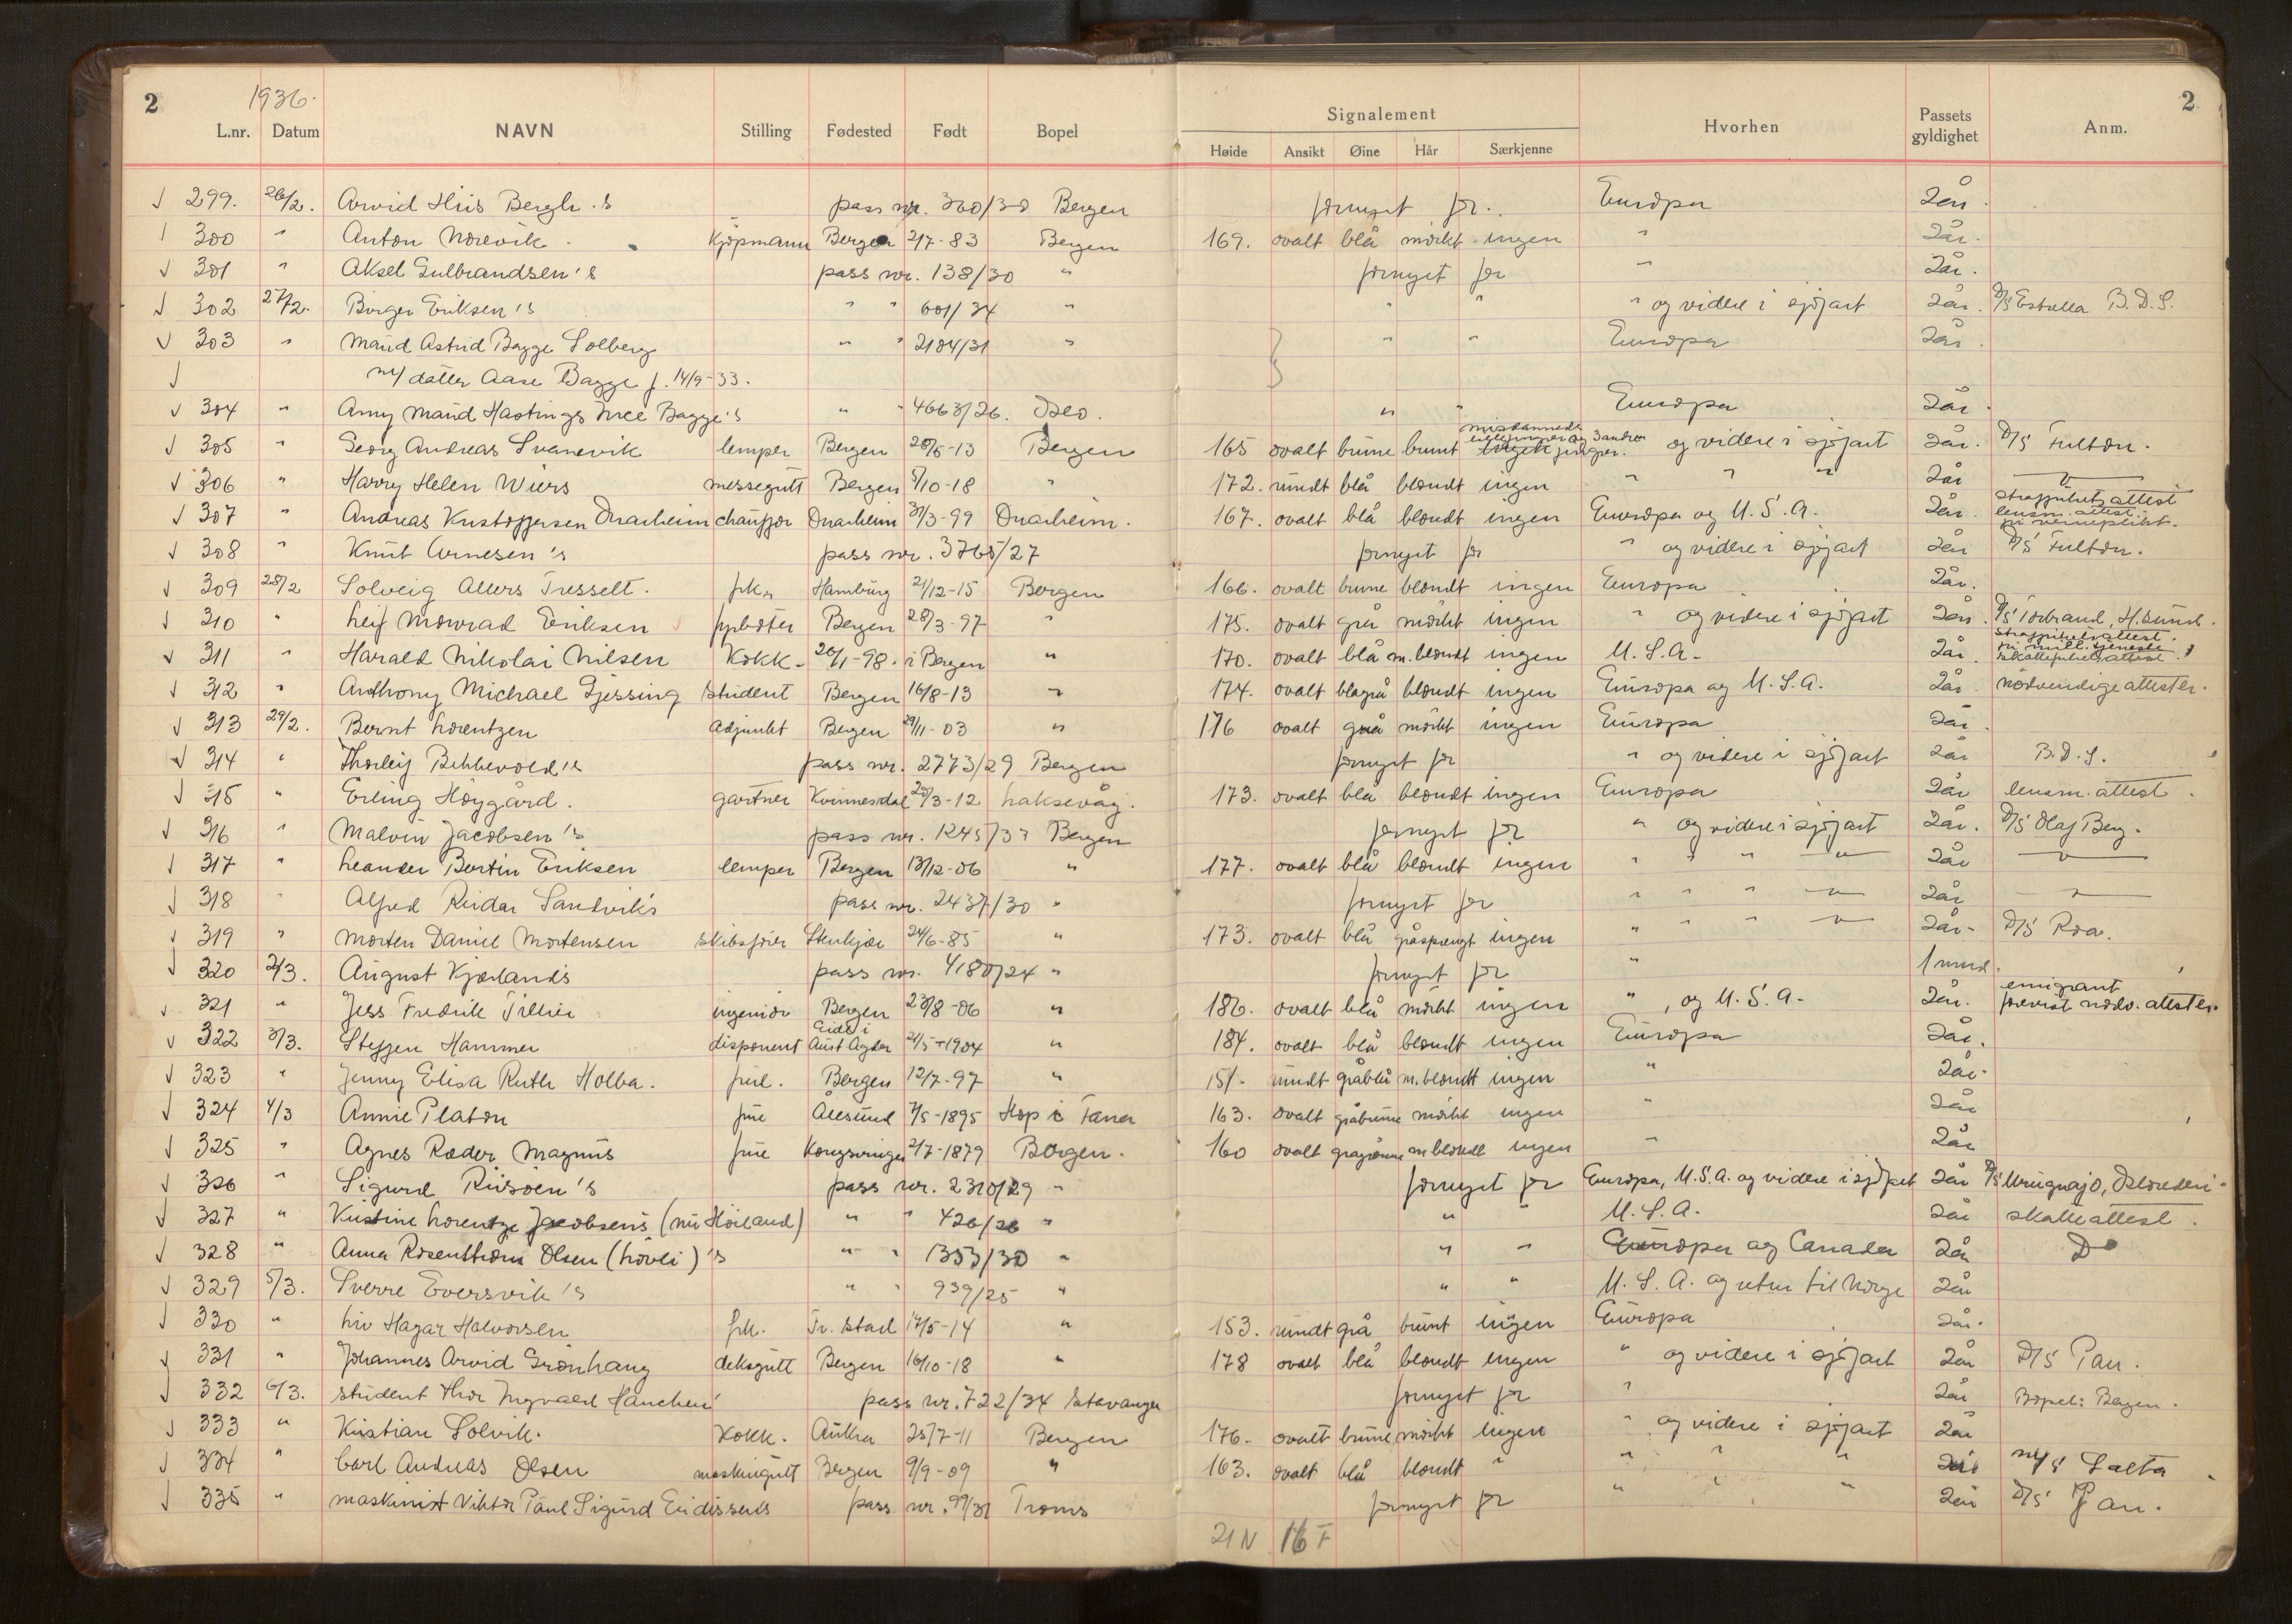 2 1936. 2
Signalement
L.nr. Datum NAVN Stilling Fødested Født Bopel Høide Ansikt Øine Hår Særkjenne Hvorhen Passets gyldighet Anm.
299. 26/2. Arvid Hiis Bergh's pass nr. 360/30 Bergen fornyet for Europa 2år.
300 " Anton Norevik Kjøpmann Bergen 2/7-83 Bergen 169. ovalt blå mørkt ingen " 2år.
301 " Aksel Gulbrandsen's pass nr. 138/30 " fornyet for " 2år.
302 27/2. Birger Eriksen's " " 601/34 " " " " og videre i sjøfart 2år. D/S Estrella B.D.S.
303 " Maud Astrid Bagge Solberg " " 2184/31 " " " Europa 2år.
m/ datter Aase Bagge f. 14/9-33.
304 " Amy Maud Hastings Irce Bagge's " " 4663/26. Oslo. " " Europa 2år.
305 " Georg Andreas Svanevik lemper Bergen 28/5-13 Bergen 165 ovalt brune brunt misdannede og 3 andre og videre i sjøfart 2år. D/S Fulton.
306 " Harry Helen Wiers messegutt Bergen 8/10-18 " 172. rundt blå blondt ingen " " " 2år "
307 " Andreas Kristoffersen Onarheim chauffør Onarheim 31/3-99 Onarheim. 167. ovalt blå blondt ingen Europa og U.S.A. 2år. straffrihets attest lensm. attest på verneplikt.
308 " Knut Arnesen's pass nr. 3765/27 fornyet for " og videre i sjøfart 2år D/S Fulton.
309 28/2 Solveig Allers Tresselt. frk. Hamburg 21/12-15 Bergen 166. ovalt brune blondt ingen Europa 2år.
310 " Leif Monrad Eriksen fyrbøter Bergen 28/3-97 " 175. ovalt grå mørkt ingen " og videre i sjøfart 2år. D/S Torbrand, H.sund.
311 " Harald Nikolai Nilsen Kokk- 26/1-98. i Bergen " 170. ovalt blå m.blondt ingen U.S.A- 2år. straffrihetsattest. på mill. tjeneste skattefrihetsattest.
312 " Anthony Michael Gjessing student Bergen 16/8-13 " 174. ovalt blågrå blondt ingen Europa og U.S.A. 2år. nødvendige attester.
313 29/2. Bernt Lorentzen adjunkt Bergen 29/11-03 " 176 ovalt grå mørkt ingen Europa 2år.
314 " Thorleif Bekkevold's pass nr. 2773/29 Bergen fornyet for " og videre i sjøfart 2år B.D.S.
315 " Erling Høygård. gartner Kvinnesdal 29/3-12 Laksevåg. 173. ovalt blå blondt ingen Europa 2år lensm. attest.
316 " Malvin Jacobsen's pass nr. 1245/33 Bergen fornyet for " og videre i sjøfart 2år. D/S Olaf Berg.
317 " Leander Bertin Eriksen lemper Bergen 13/12-06 " 177. ovalt blå blondt ingen " " " " 2år "
318 " Alfred Reidar Sandvik's pass nr. 2437/30 " fornyet for " " " " 2år "
319 " Morten Daniel Mortensen skibsfører Stenkjær 24/6-85 " 173. ovalt blå gråsprengt ingen " " " " 2år- D/S Roa.
320 2/3. August Kjørlands pass nr. 4180/24 " fornyet for " 1 mnd.
321 " Jess Fredrik Tillier ingeniør Bergen 23/8-06 " 186. ovalt blå mørkt ingen ", og U.S.A- 2år. emigrant forevist nødv. attester.
322 3/3. Steffen Hammer disponent Eide i Aust Agder 21/5-1904 " 184. ovalt blå blondt ingen Europa 2år.
323 " Jenny Elisa Ruth Holba. frøl. Bergen 12/7-97 " 151. rundt gråblå m.blondt ingen " 2år.
324 4/3 Annie Platou frue Ålesund 7/5-1895 Hop i Fana 163. ovalt gråbrune mørkt ingen " 2år
325 " Agnes Ræder Magnus frue Kongsvinger 2/7-1879 Bergen. 160 ovalt grågrønne m.blondt ingen " 2år
326 " Sigurd Riisøen's pass nr. 2310/29 " fornyet for Europa, U.S.A. og videre i sjøfart 2år D/S Uruguajo, Oslorederi-
327 " Kristine Lorentze Jacobsens (nu Høiland) " " 426/26 " " " U.S.A. 2år skatteattest.
328 " Anna Rosenstrøm Olsen (Løvli)'s " " 1353/30 " " " Europa og Canada 2år Do
329 5/3. Sverre Eversvik's " " 939/25 " " " U.S.A. og retur til Norge 2år
330 " Liv Hagar Halvorsen frk. Fr.stad 17/5-14 " 153. rundt grå brunt ingen Europa 2år.
331 " Johannes Arvid Grønhaug deksgutt Bergen 16/10-18 " 178 ovalt blå blondt ingen " og videre i sjøfart 2år D/S Pan.
332 6/3. student Thor Ingvald Hanchen' pass nr. 722/34 Stavanger fornyet for " 2år Bopel: Bergen.
333 " Kristian Solvik. Kokk. Aukra 25/7-11 Bergen 176- ovalt brune mørkt ingen " og videre i sjøfart 2år
334 " Carl Andreas Olsen maskingutt Bergen 9/9-09 " 163. ovalt blå blondt " " " " 2år m/s Salta
335 " maskinist Viktor Paul Sigurd Eidissens pass nr. 99/31 Troms fornyet for " " " 2år D/S Pan.
21 N 16 F